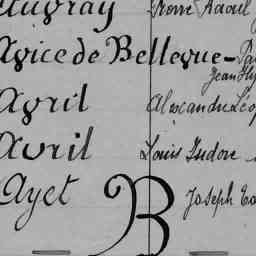 Auvray Pierre Raoul
Avice de Bellevue - 
Jean
Avril Alexandre Léop
Avril Louis Isidore
Ayet Joseph
B